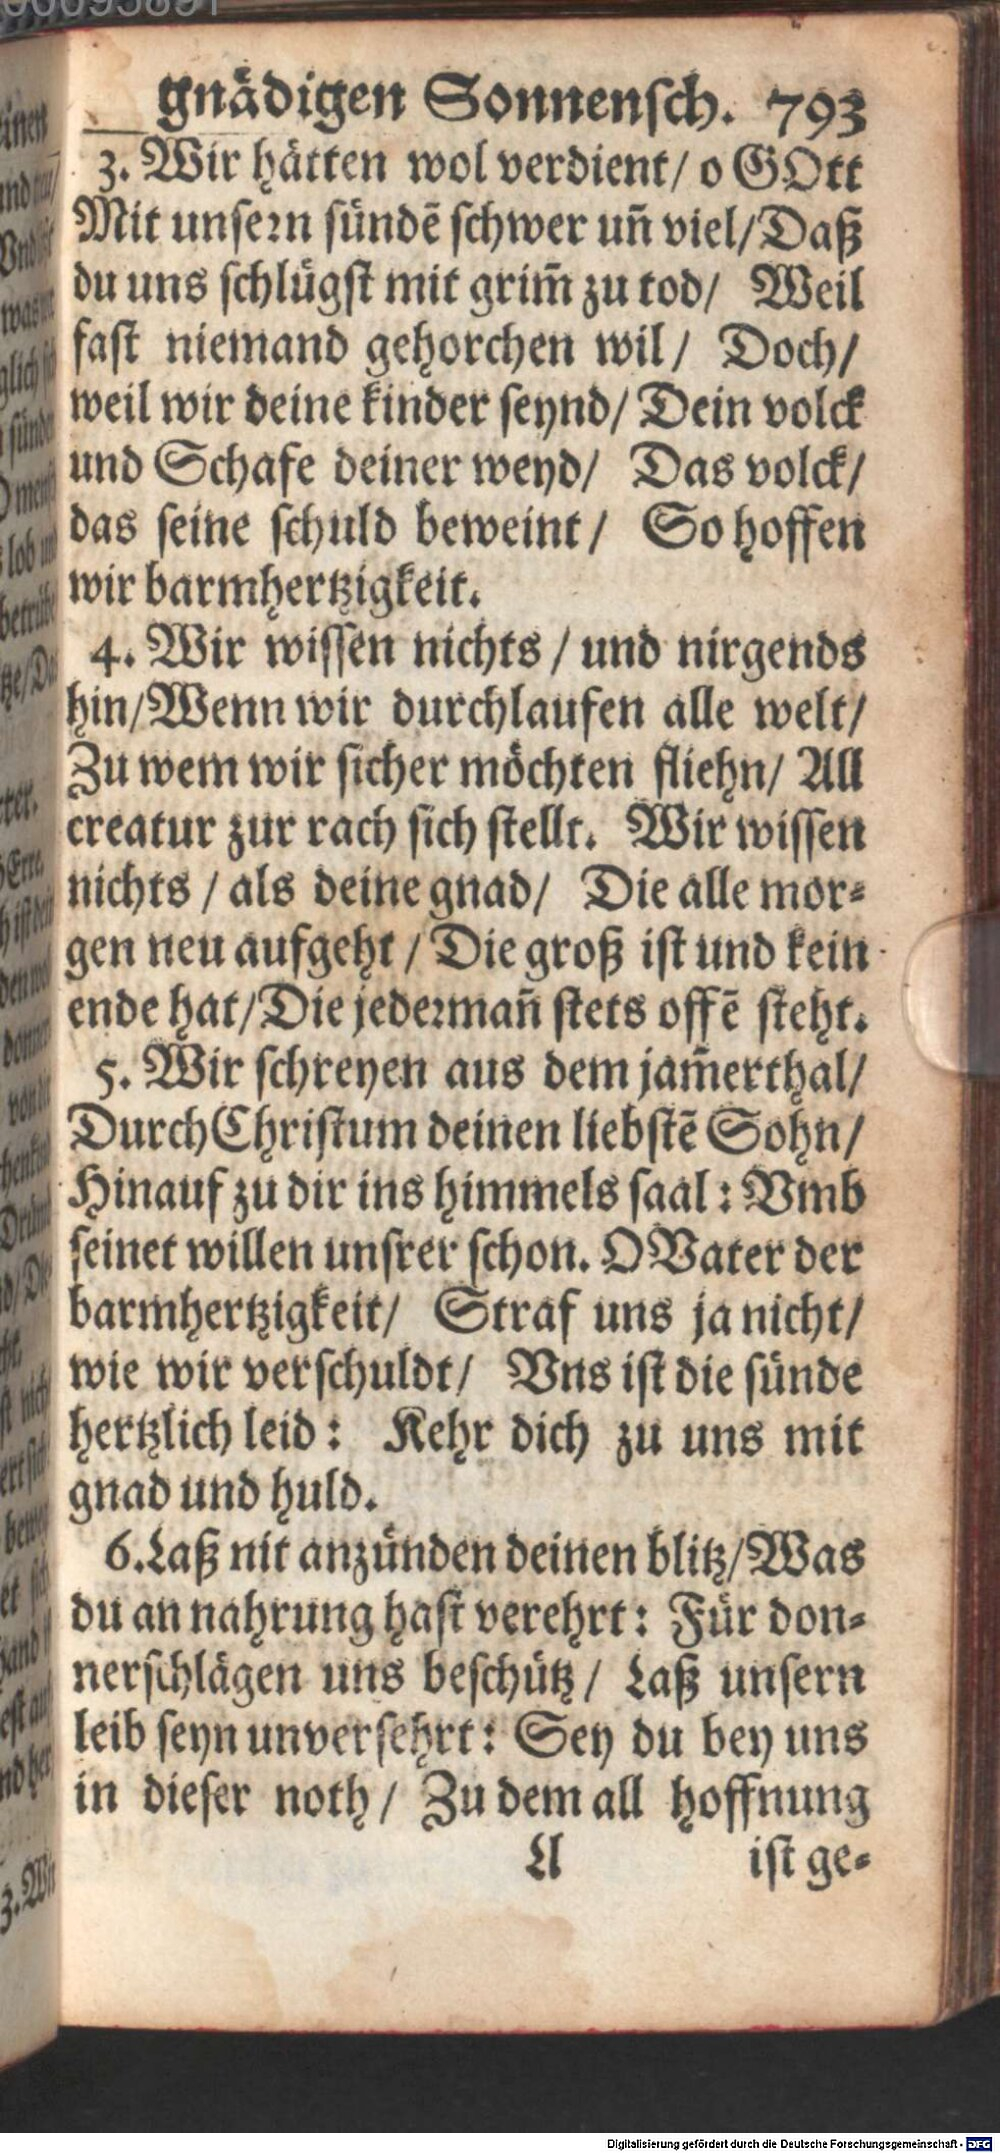 gnädigen Sonnensch. 793
3. Wir hätten wol verdient/ o GOtt
Mit unsern sündẽ schwer uñ viel/ Daß
du uns schlügst mit grim̃ zu tod/ Weil
fast niemand gehorchen wil/ Doch/
weil wir deine kinder seynd/ Dein volck
und Schafe deiner weyd/ Das volck/
das seine schuld beweint/ So hoffen
wir barmhertzigkeit.
4. Wir wissen nichts / und nirgends
hin/ Wenn wir durchlaufen alle welt/
Zu wem wir sicher möchten fliehn/ All
creatur zur rach sich stellt. Wir wissen
nichts / als deine gnad/ Die alle mor-
gen neu aufgeht / Die groß ist und kein
ende hat/ Die jedermañ stets offẽ steht.
5. Wir schreyen aus dem jam̃erthal/
Durch Christum deinen liebstẽ Sohn/
Hinauf zu dir ins himmels saal: Vmb
seinet willen unsrer schon. O Vater der
barmhertzigkeit/ Straf uns ja nicht/
wie wir verschuldt/ Vns ist die sünde
hertzlich leid: Kehr dich zu uns mit
gnad und huld.
6. Laß nit anzünden deinen blitz/ Was
du an nahrung hast verehrt: Für don-
nerschlägen uns beschütz/ Laß unsern
leib seyn unversehrt: Sey du bey uns
in dieser noth/ Zu dem all hoffnung
ist ge-
Digitalisierung gefördert durch die Deutsche Forschungsgemeinschaft - DFG